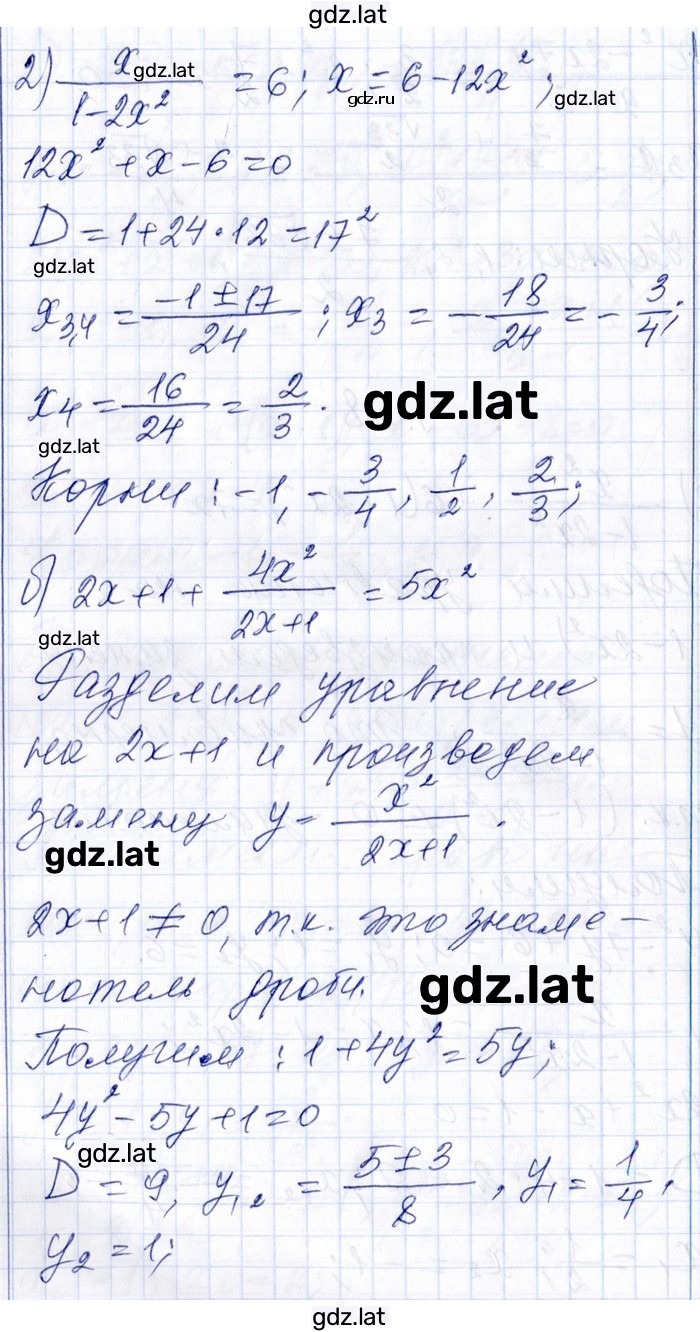 gdz.lat
2) x/(1-2x²) = 6; x = 6-12x²;
gdz.lat
gdz.ru
gdz.lat
12x² + x - 6 = 0
D = 1+24·12 = 17²
gdz.lat
x₃,₄ = (-1±17)/24; x₃ = -18/24 = -3/4;
x₄ = 16/24 = 2/3.
gdz.lat
gdz.lat
Корни: -1, -3/4, 1/2, 2/3;
б) 2x+1+ 4x²/(2x+1) = 5x²
gdz.lat
Разделим уравнение
на 2x+1 и произведем
замену y = x²/(2x+1).
gdz.lat
2x+1 ≠ 0, т.к. это знаме-
натель дроби.
gdz.lat
Получим: 1+4y² = 5y;
4y² - 5y + 1 = 0
gdz.lat
D = 9, y₁,₂ = (5±3)/8, y₁ = 1/4,
y₂ = 1;
gdz.lat